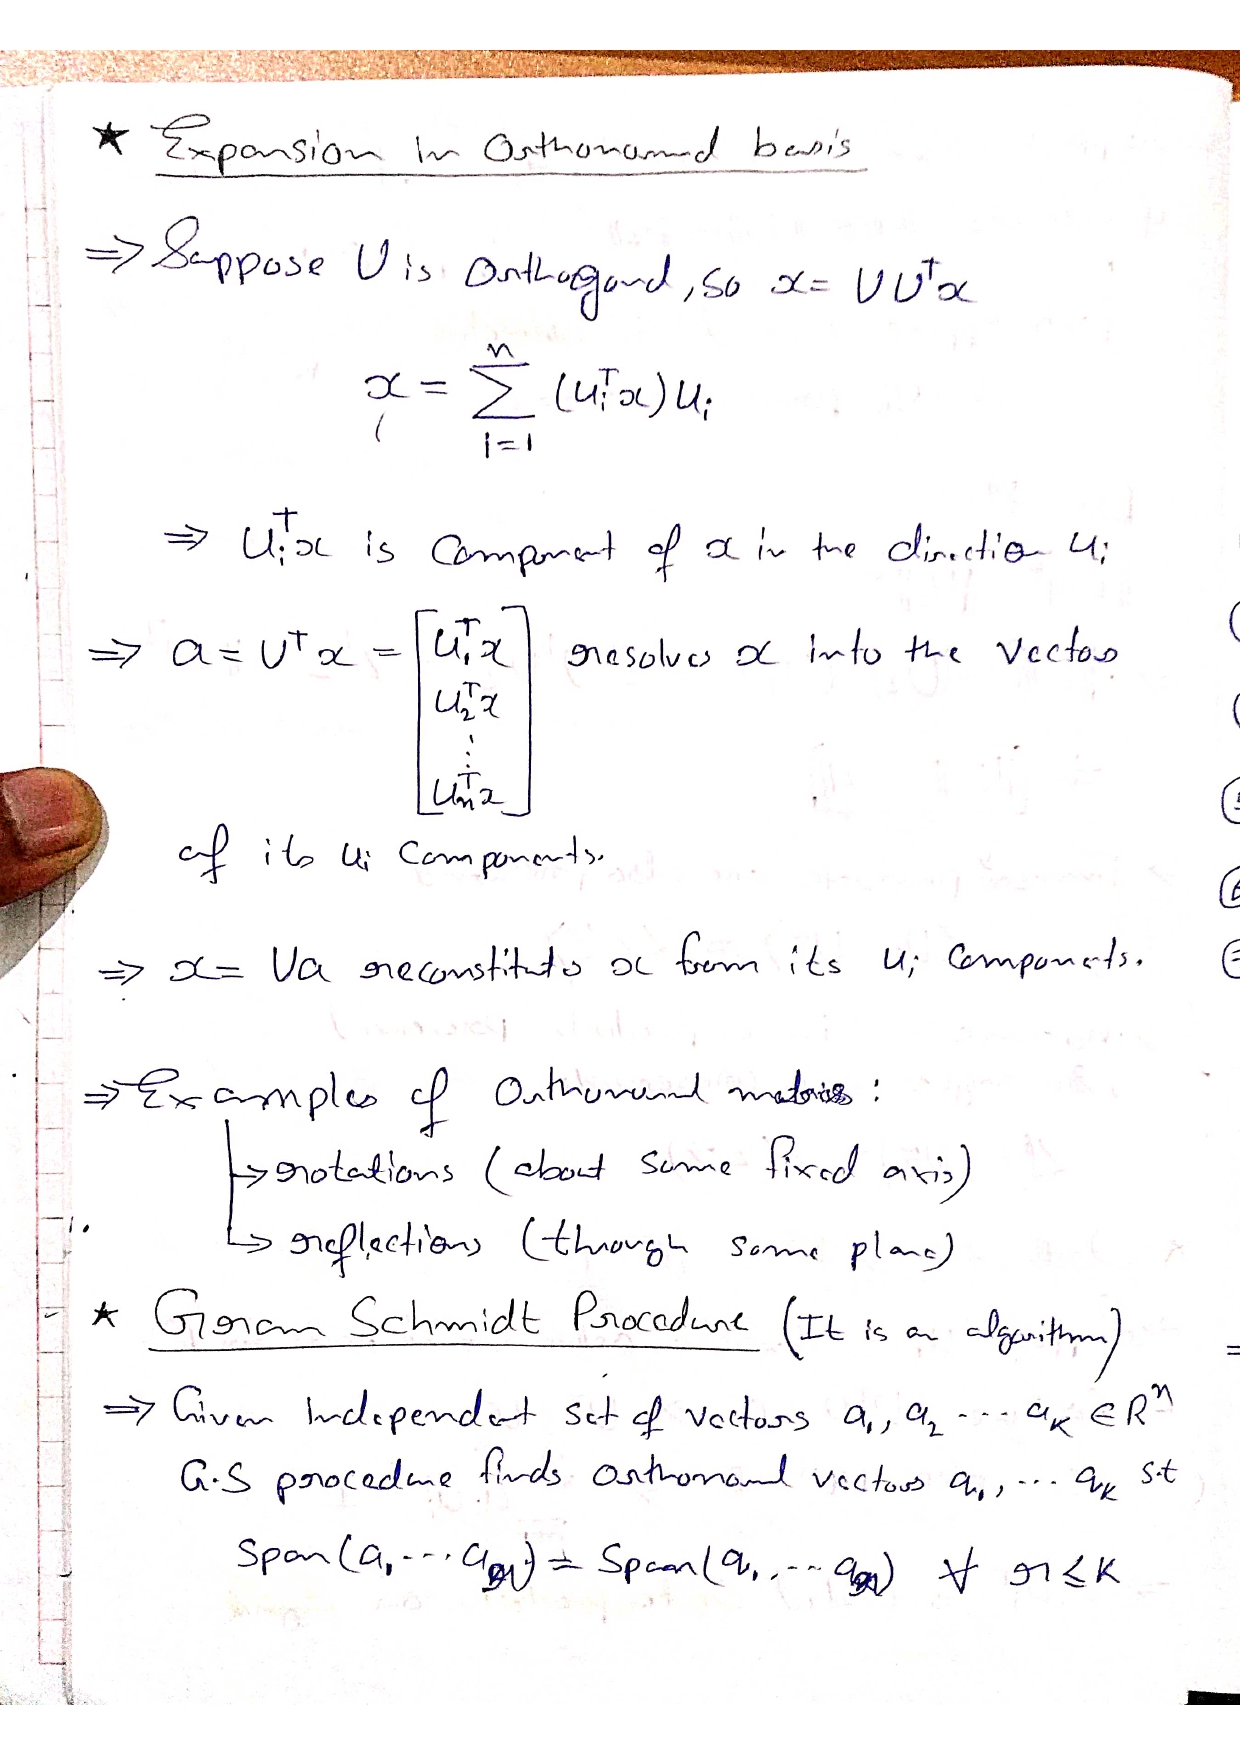 ★ Expansion in Orthonormal basis
⇒ Suppose U is Orthogonal, so x = UUᵀx
x = Σ (uᵢᵀx) uᵢ
n
i=1
⇒ uᵢᵀx is Component of x in the direction uᵢ
⇒ a = Uᵀx = [u₁ᵀx resolves x into the vectors
u₂ᵀx
⋮
uₙᵀx]
of its uᵢ Components.
⇒ x = Ua reconstitutes x from its uᵢ Components.
⇒ Examples of Orthonormal matrices :
↳ rotations (about some fixed axis)
↳ reflections (through some plane)
★ Gram Schmidt Procedure (It is an algorithm)
⇒ Given Independent set of vectors a₁, a₂ --- aₖ ∈ Rⁿ
G.S procedure finds orthonormal vectors q₁, ... qₖ s.t
Span(a₁ --- aᵣ) = Span(q₁, --- qᵣ) ∀ r ≤ K